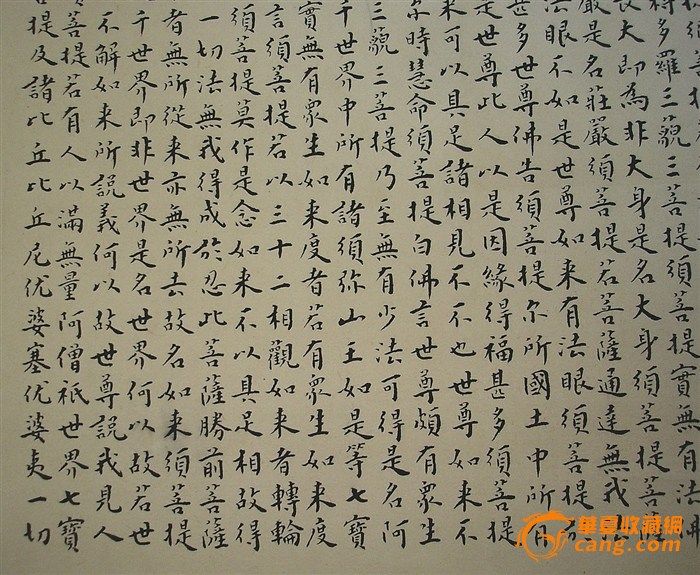 得多羅三藐三菩提須菩提實無有法佛
長大即為非大身是名大身須菩提菩薩
嚴是名莊嚴須菩提若菩薩通達無我法
法眼不如是世尊如来有法眼須菩提於
甚多世尊佛告須菩提尔所國土中所有
是世尊此人以是因緣得福甚多須菩提
来可以具足諸相見不不也世尊如来不
尔時慧命須菩提白佛言世尊頗有衆生
三藐三菩提乃至無有少法可得是名阿
千世界中所有諸須弥山王如是等七寶
實無有衆生如来度者若有衆生如来度
言須菩提若以三十二相觀如来者轉輪
須菩提莫作是念如来不以具足相故得
一切法無我得成於忍此菩薩勝前菩薩
者無所從来亦無所去故名如来須菩提
千世界即非世界是名世界何以故若世
不解如来所說義何以故世尊說我見人
菩提若有人以滿無量阿僧祇世界七寶
提及諸比丘比丘尼优婆塞优婆夷一切
華夏收藏網
cang.com